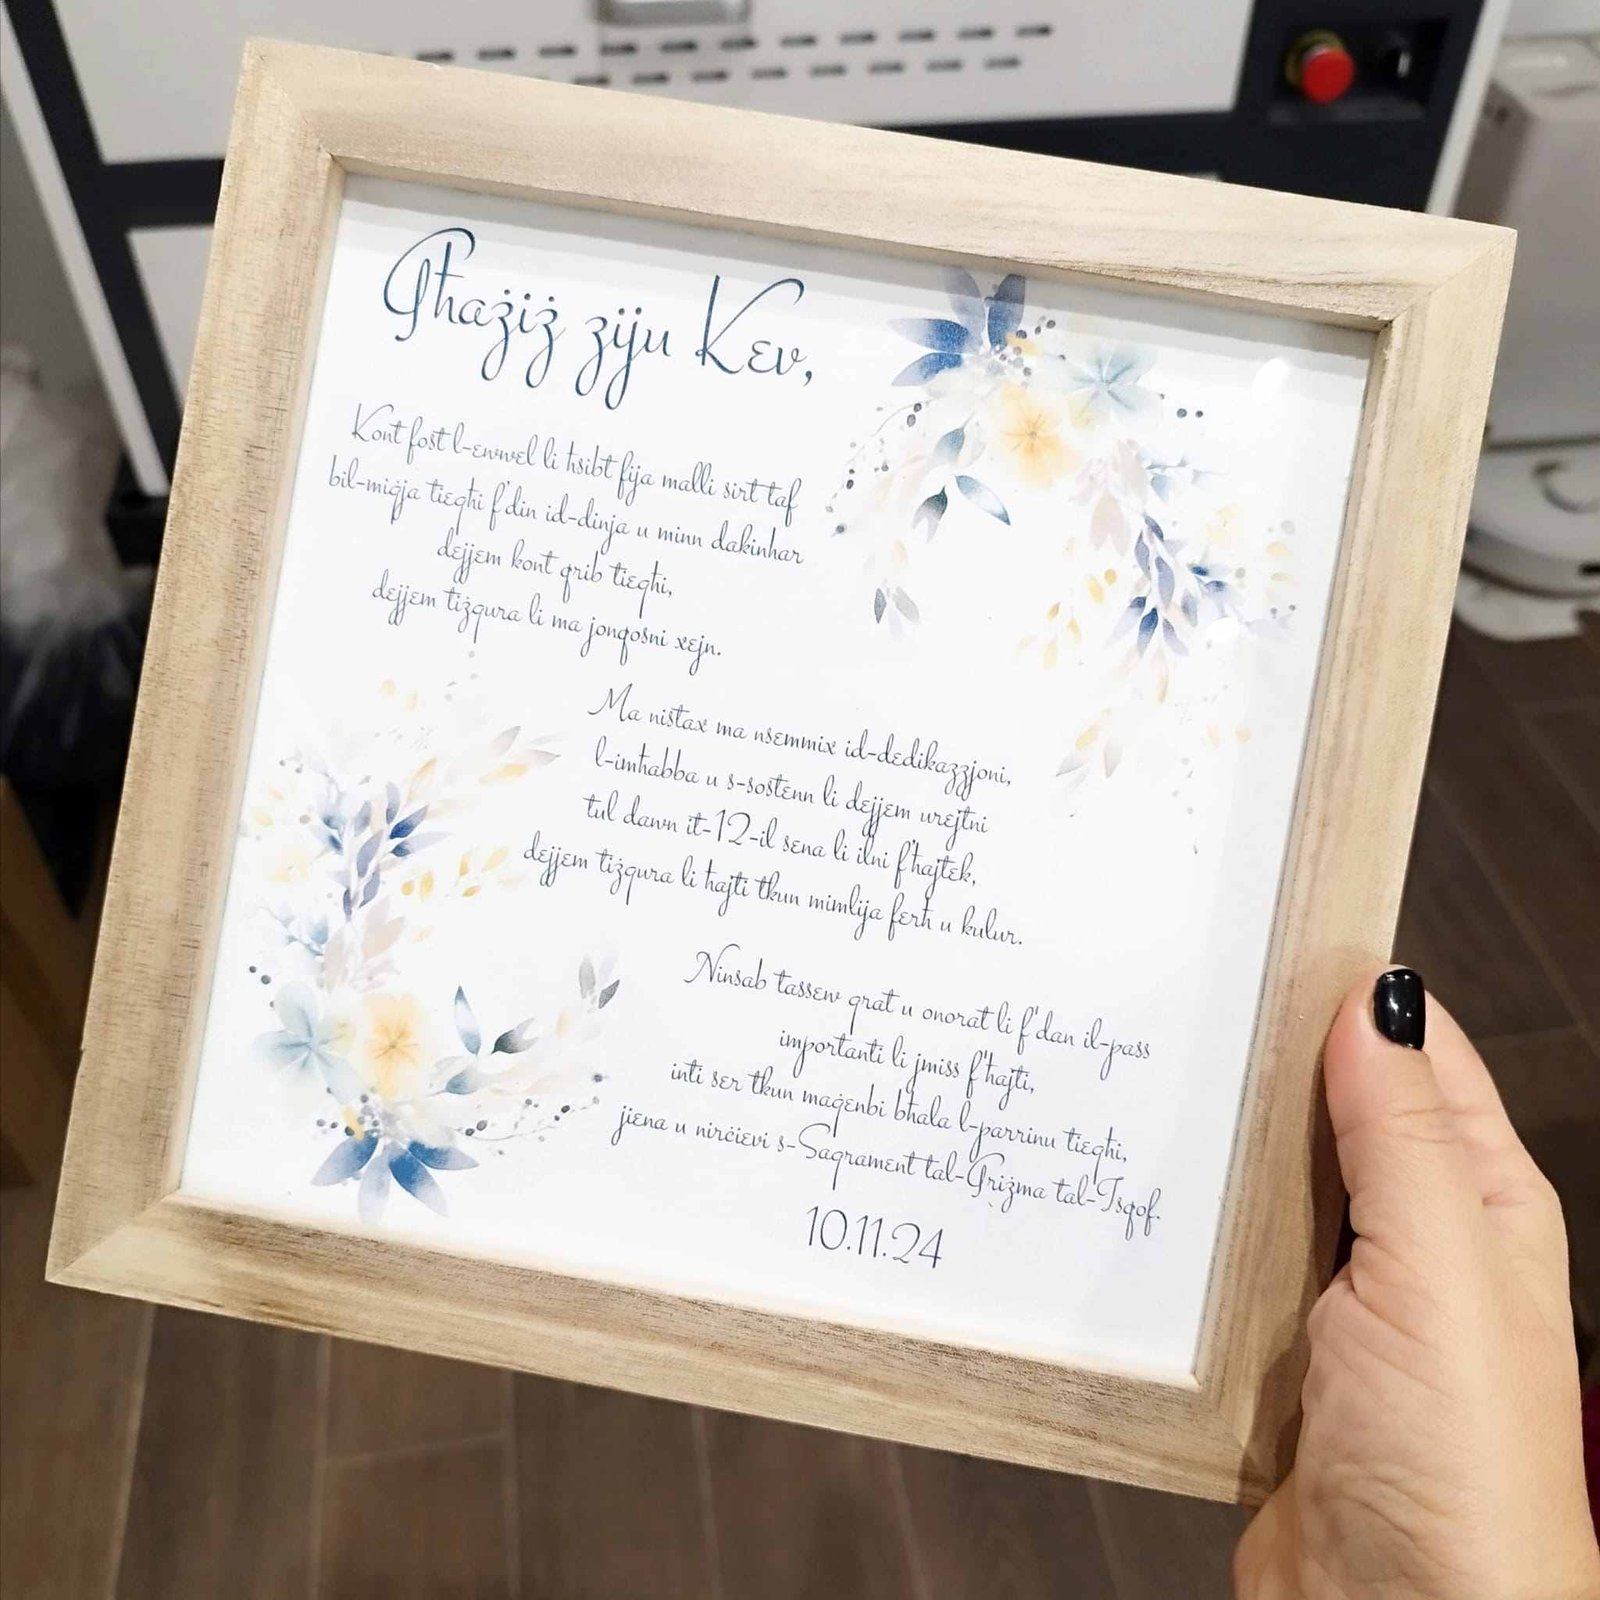 Għażiż ziju Kev,
Kont fost l-ewwel li ħsibt fija malli sirt taf
bil-miġja tiegħi f'din id-dinja u minn dakinhar
dejjem kont qrib tiegħi,
dejjem tiżgura li ma jonqosni xejn.
Ma nistax ma nsemmix id-dedikazzjoni,
l-imħabba u s-sostenn li dejjem urejtni
tul dawn it-12-il sena li ilni f'ħajtek,
dejjem tiżgura li ħajti tkun mimlija ferħ u kulur.
Ninsab tassew grat u onorat li f'dan il-pass
importanti li jmiss f'ħajti,
inti ser tkun maġenbi bħala l-parrinu tiegħi,
jiena u nirċievi s-Sagrament tal-Griżma tal-Isqof.
10.11.24